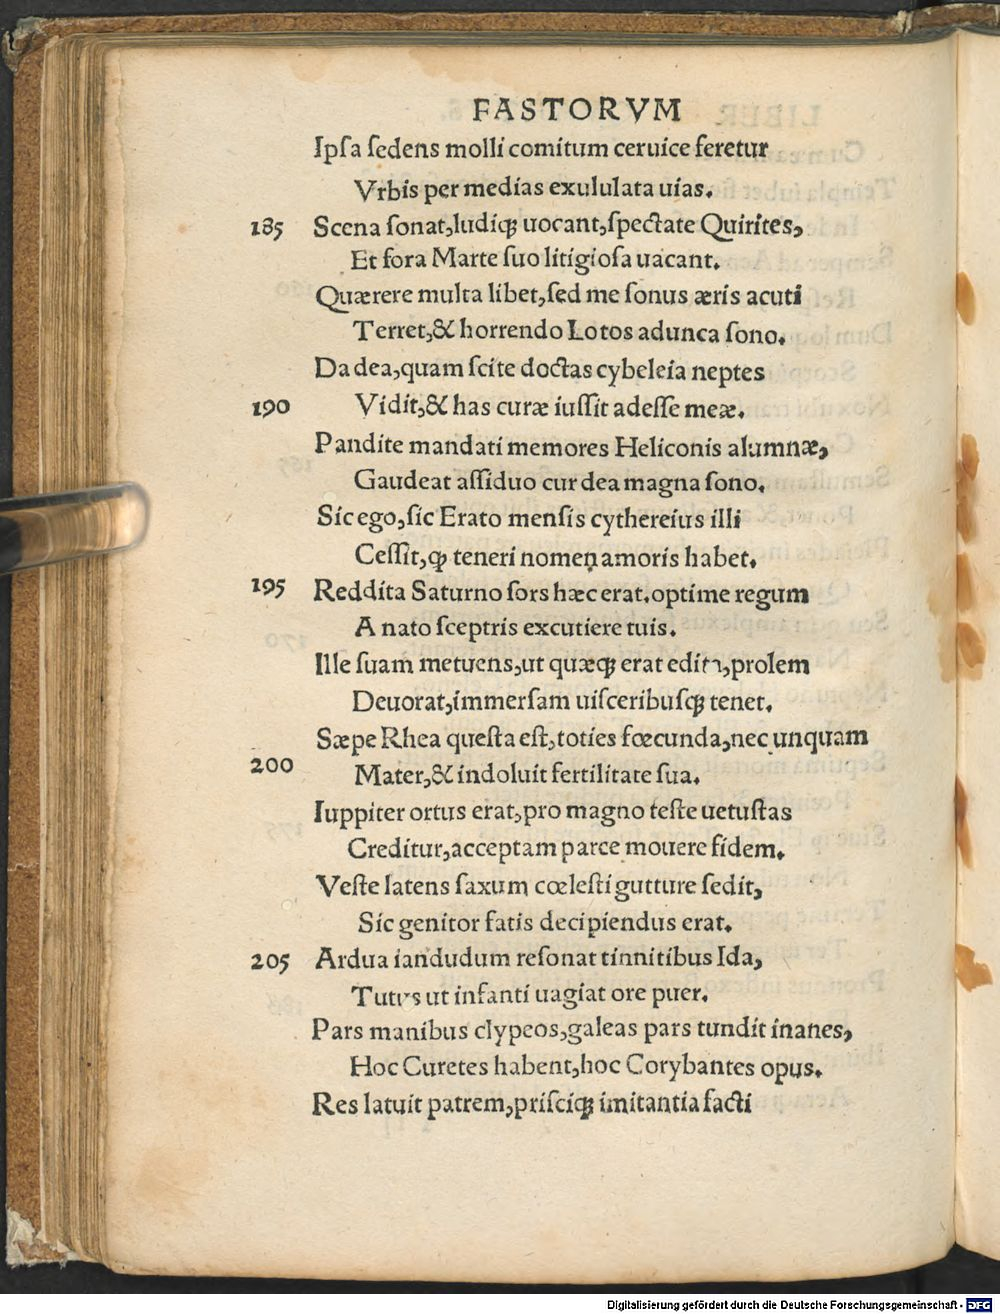 FASTORVM
Ipſa ſedens molli comitum ceruice feretur
Vrbis per medias exululata uias.
185 Scena ſonat, ludiqꝫ uocant, ſpectate Quirites,
Et fora Marte ſuo litigioſa uacant.
Quærere multa libet, ſed me ſonus æris acuti
Terret, & horrendo Lotos adunca ſono.
Da dea, quam ſcite doctas cybeleia neptes
190 Vidit, & has curæ iuſſit adeſſe meæ.
Pandite mandati memores Heliconis alumnæ,
Gaudeat aſſiduo cur dea magna ſono.
Sic ego, ſic Erato menſis cythereius illi
Ceſſit, qꝫ teneri nomen amoris habet.
195 Reddita Saturno ſors hæc erat. optime regum
A nato ſceptris excutiere tuis.
Ille ſuam metuens, ut quæqꝫ erat edita, prolem
Deuorat, immerſam uiſceribuſqꝫ tenet.
Sæpe Rhea queſta eſt, toties fœcunda, nec unquam
200 Mater, & indoluit fertilitate ſua.
Iuppiter ortus erat, pro magno teſte uetuſtas
Creditur, acceptam parce mouere fidem.
Veſte latens ſaxum cœleſti gutture ſedit,
Sic genitor fatis decipiendus erat.
205 Ardua iandudum reſonat tinnitibus Ida,
Tutus ut infanti uagiat ore puer.
Pars manibus clypeos, galeas pars tundit inanes,
Hoc Curetes habent, hoc Corybantes opus.
Res latuit patrem, priſciqꝫ imitantia facti
Digitalisierung gefördert durch die Deutsche Forschungsgemeinschaft - DFG